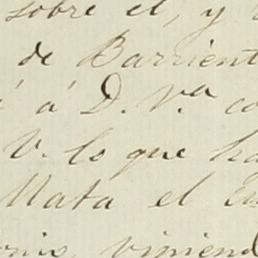 sobre el, y
de Barrient
á D. V.ª co
V. lo que ha
Mata el
viniend